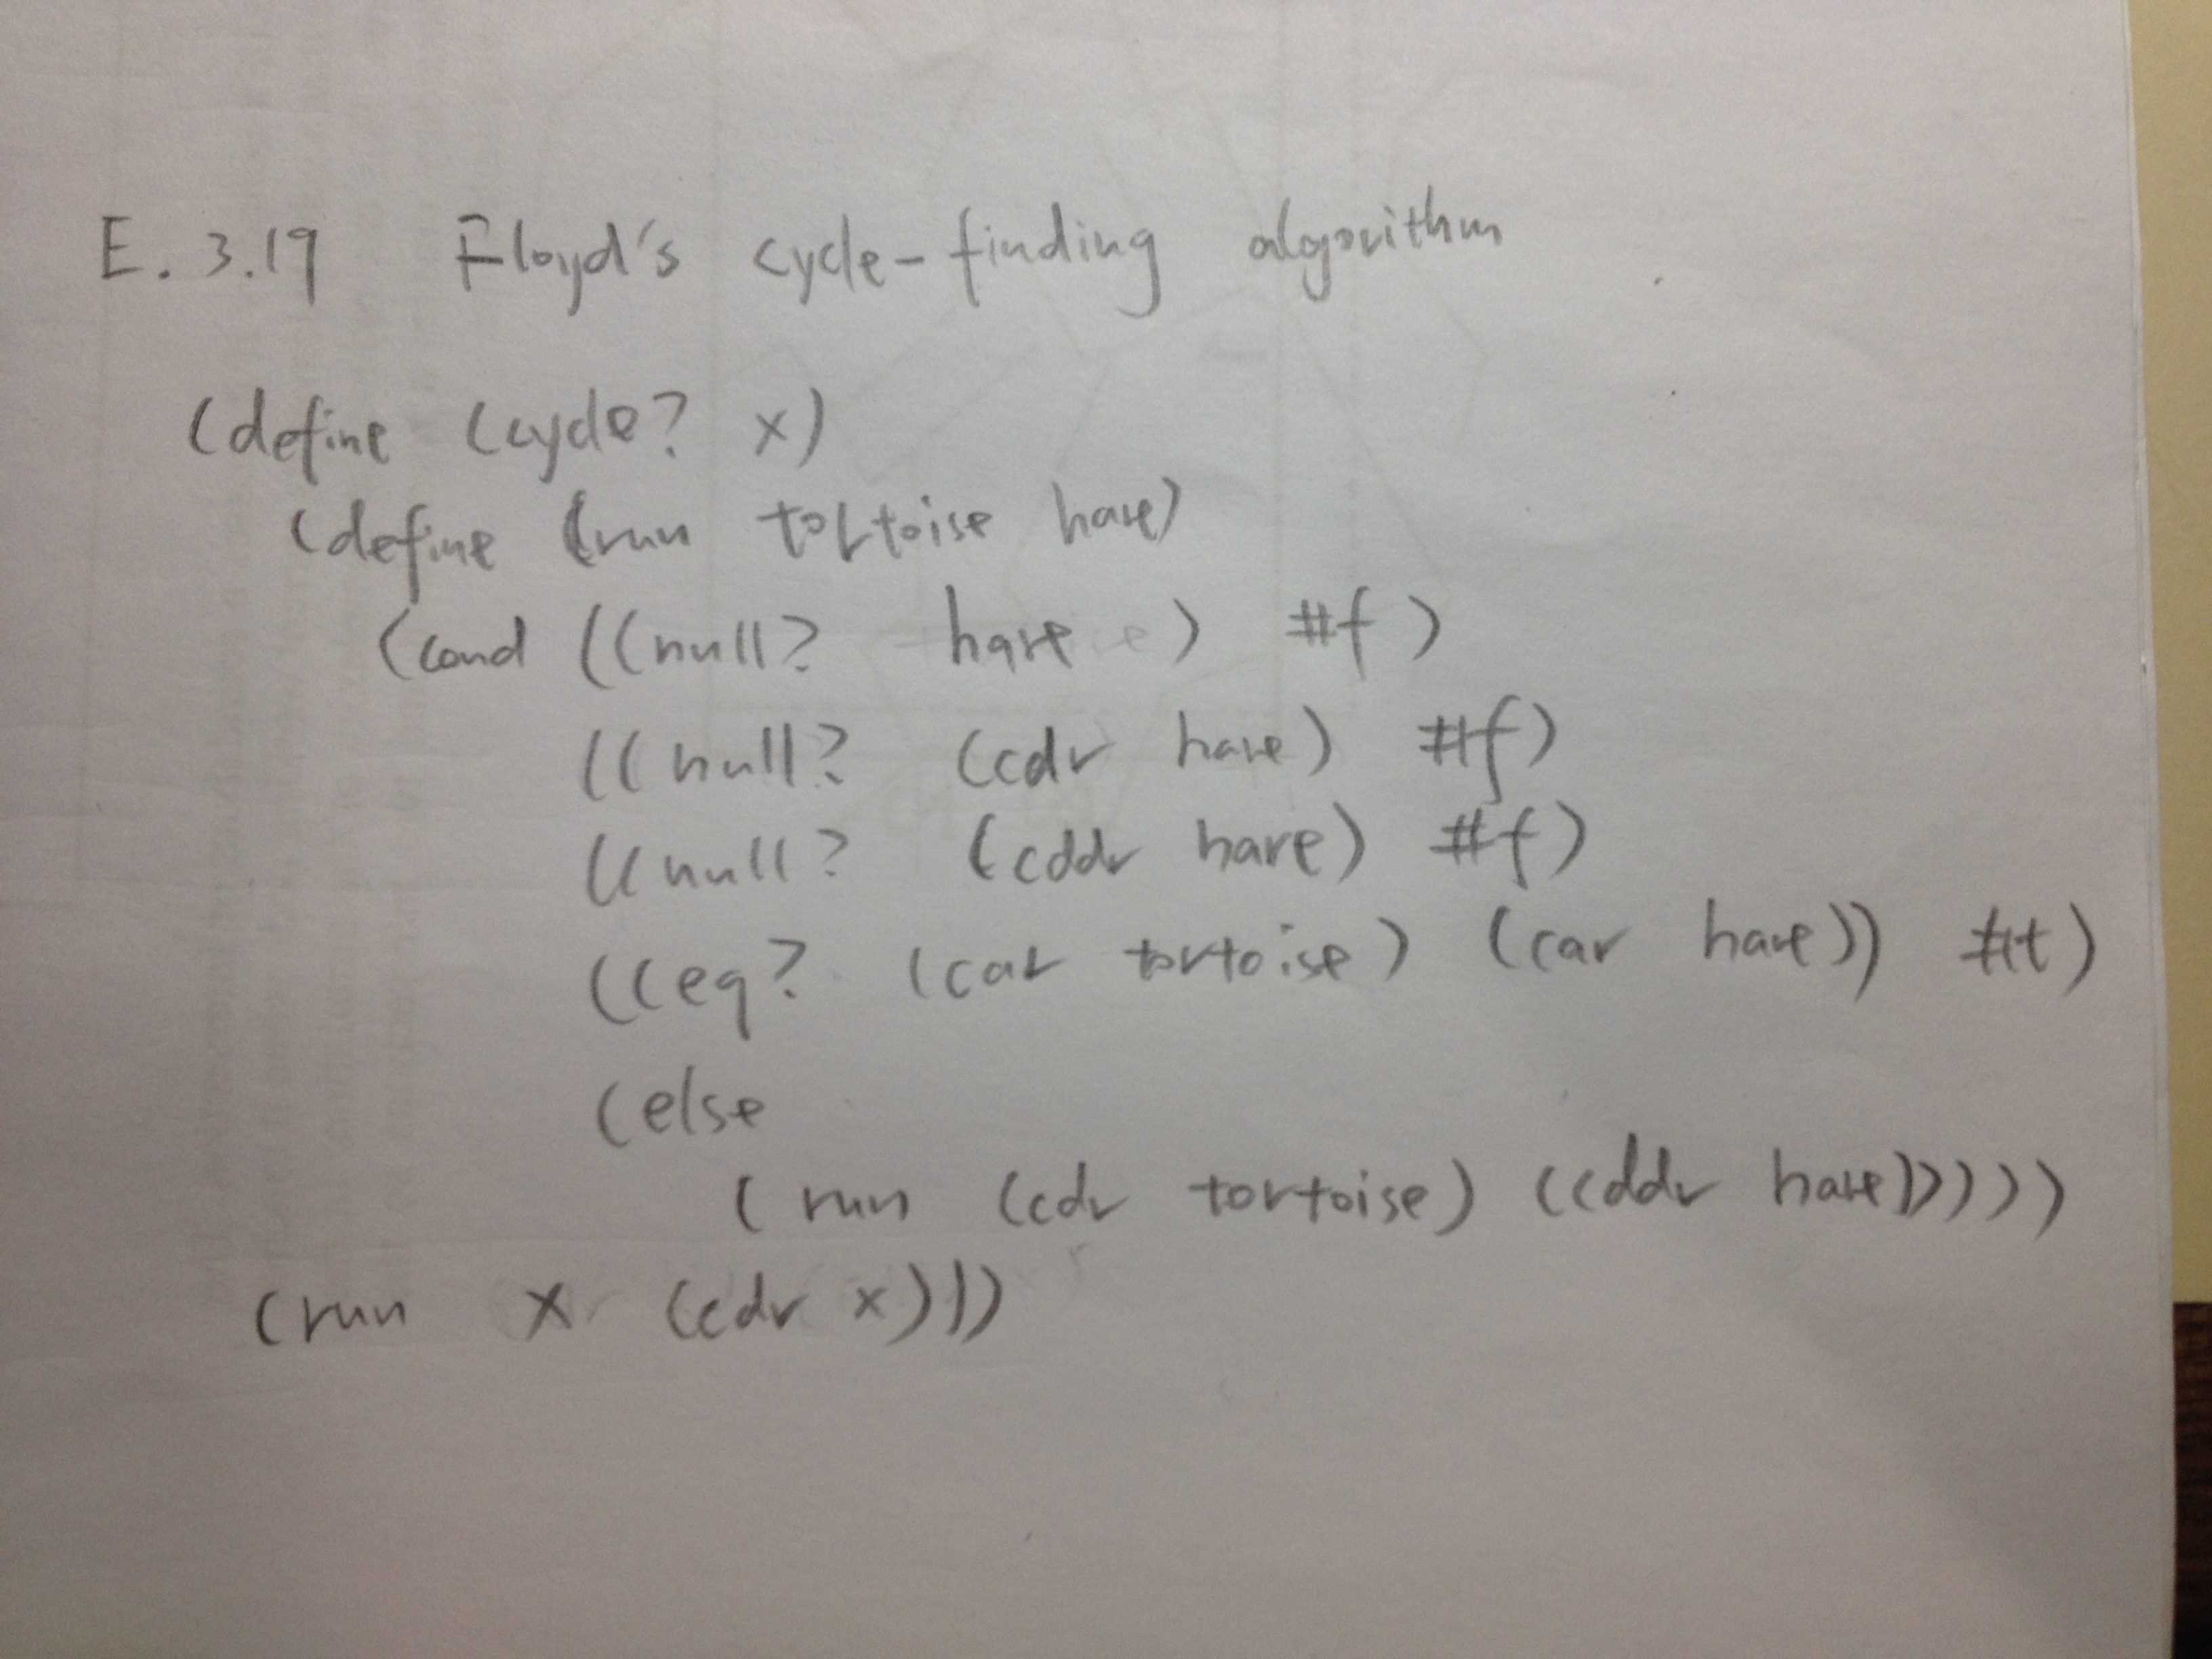 E. 3.19 Floyd's cycle-finding algorithm
(define (cycle? x)
(define (run tortoise hare)
(cond ((null? hare ) #f )
((null? (cdr hare) #f)
((null? (cddr hare) #f)
((eq? (car tortoise) (car hare)) #t)
(else
(run (cdr tortoise) (cddr hare)))))
(run x (cdr x)))